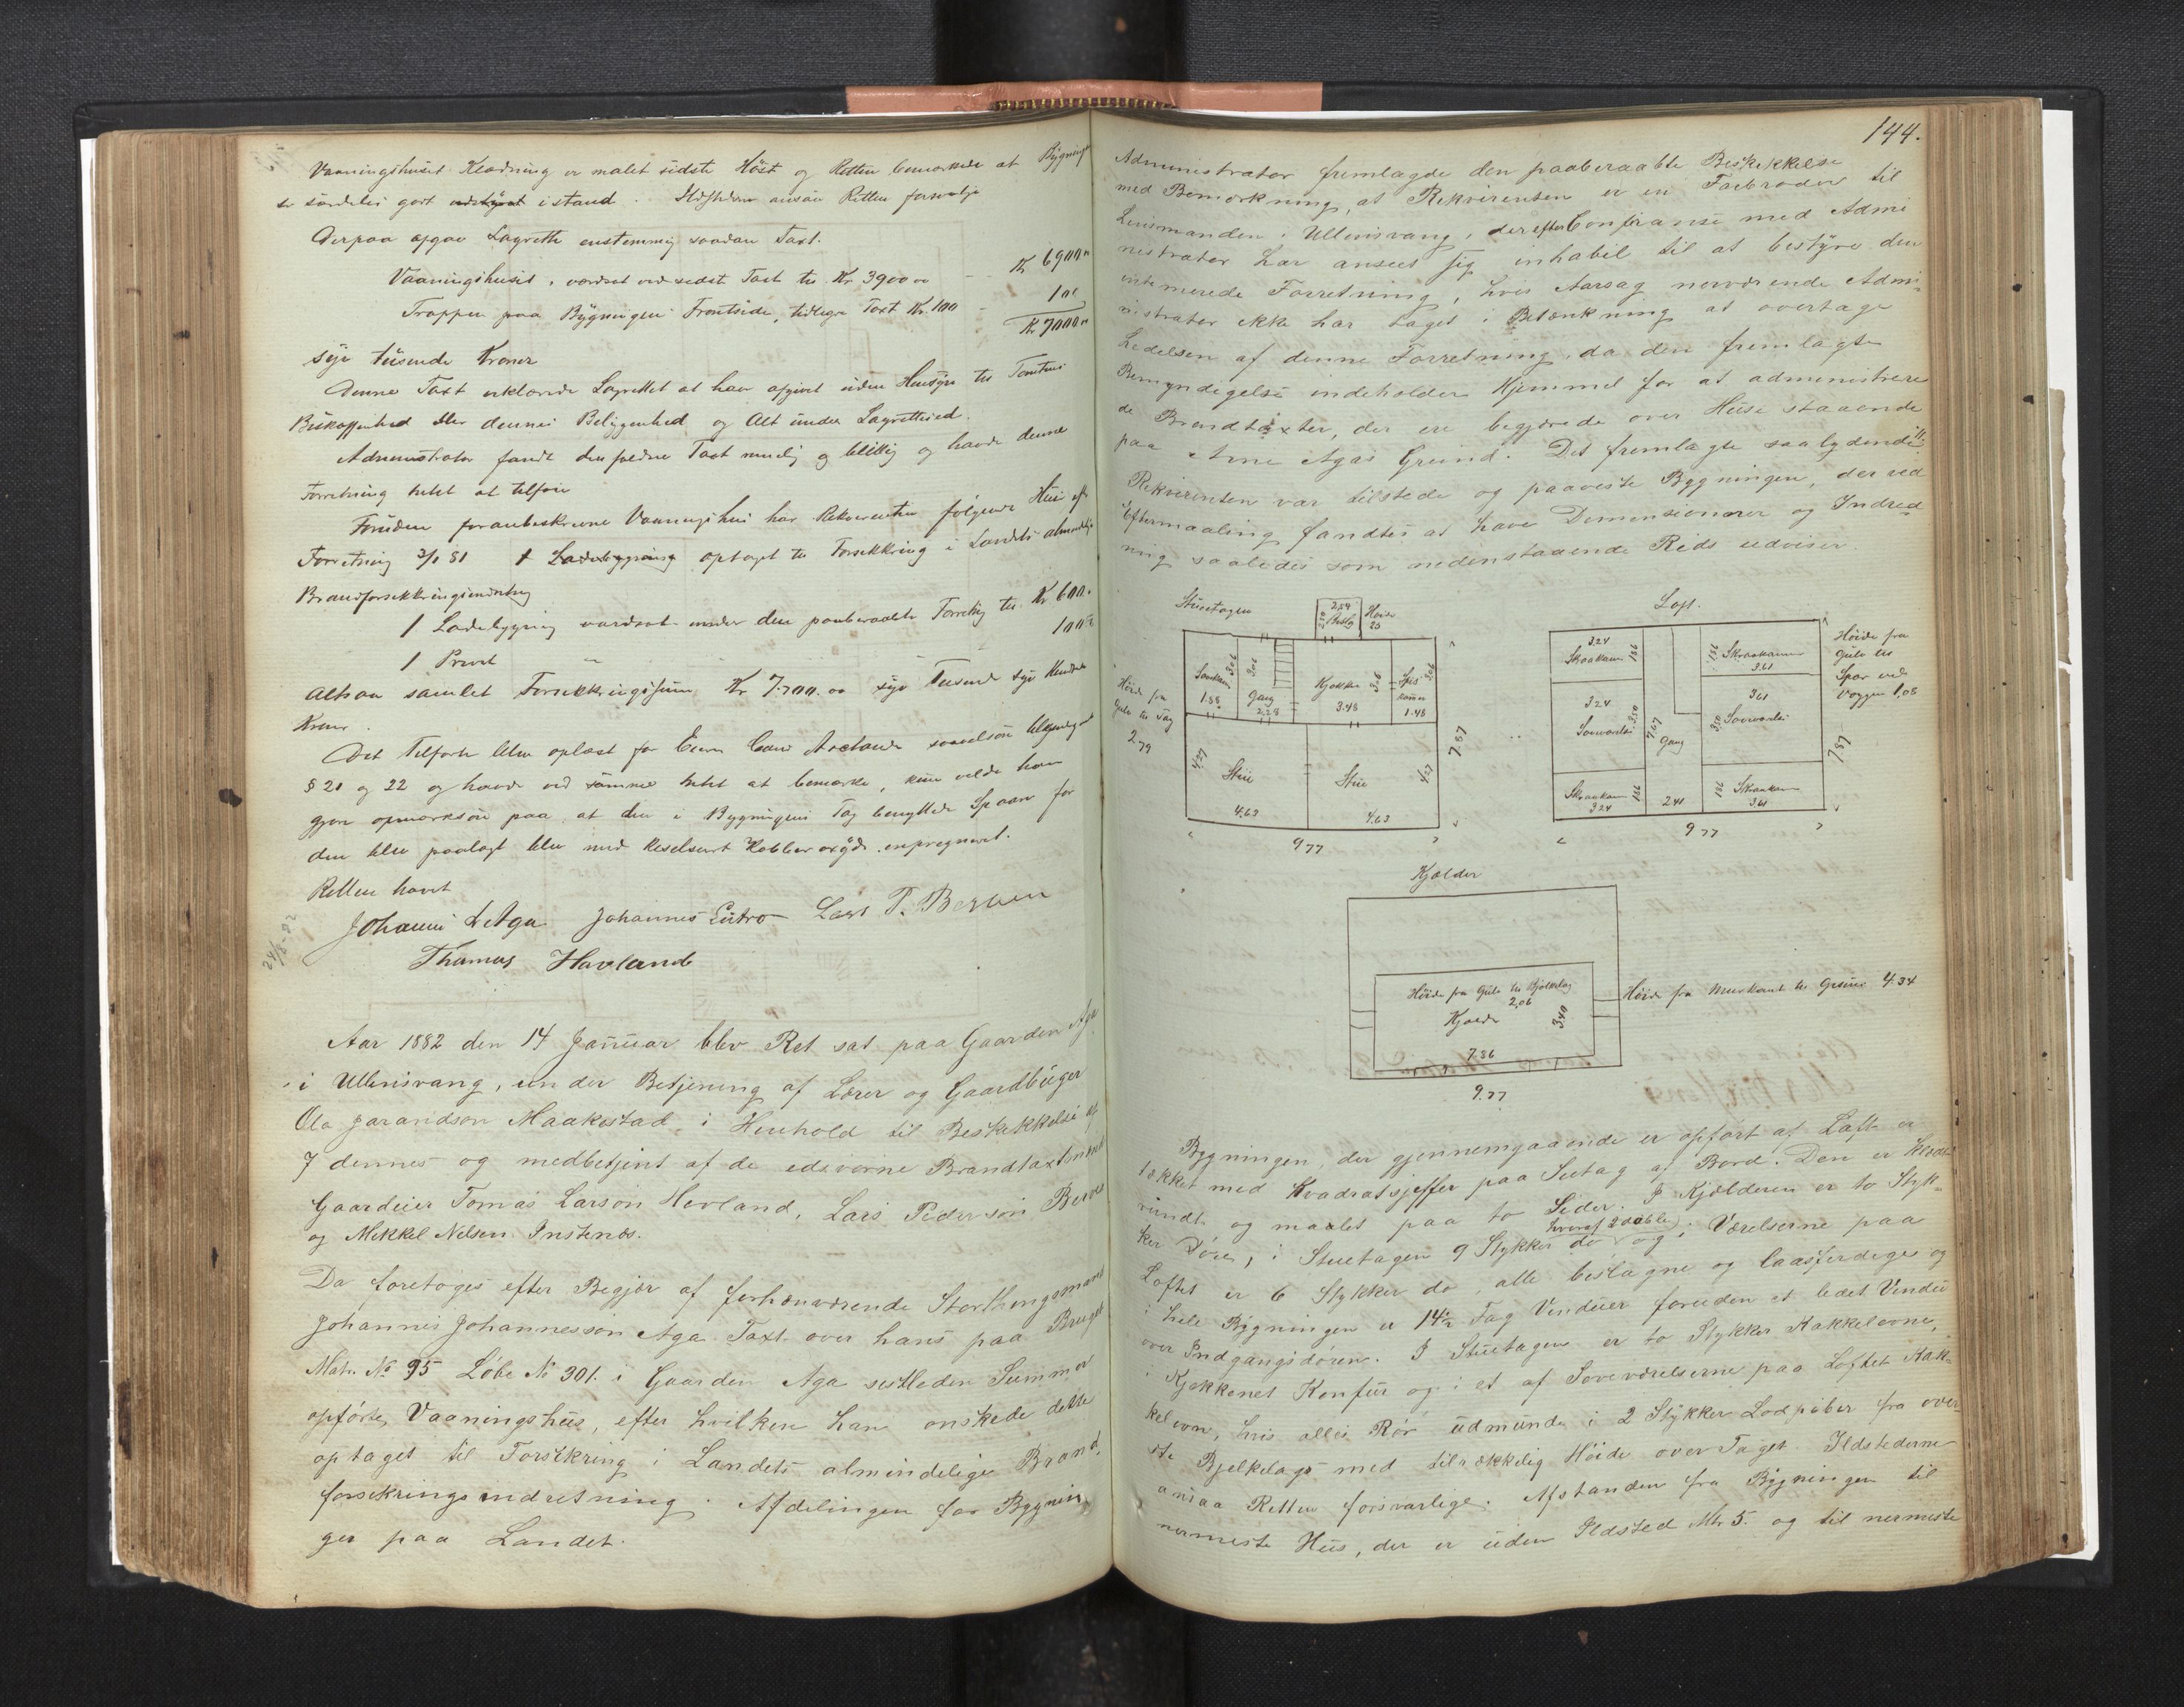 Vaaningshuset Klædning er malet sidste Höst og Retten bemærkede at Bygningen
er særdeles godt istand. Ildstederne ansaa Retten forsvarlige
Derpaa afgav Lagrette enstemmig saadan Taxt.
Vaaningshuset, vordret ved sidste Taxt til Kr. 3900 00 Kr 6900 "
Trappen paa Bygningens Frontside, tidligere Taxt Kr. 100 100
Kr 7000 "
syv tusende Kroner
Denne Taxt erklærede Lagrettet at have afgivet uden Hensyn til Tomtens
Beskaffenhed eller dennes Beliggenhed og Alt under Lagrettesed.
Administrator fandt den passerede Taxt rimelig og billig og havde denne
Forretning intet at tilføie
Foruden foranbeskrevne Vaaningshus har Rekvirenten følgende Huse efter
Forretning 3/1 81 1 Ladebygning optaget til Forsikkring i Landets almindelige
Brandforsikkringsindretning
1 Ladebygning vordsat under den paaberaabte Forretning til Kr 600.
1 Privet " 100
altsaa samlet Forsikkringssum Kr 7.700.00 syv Tusende syv Hundrede
Kroner.
Det Tilførte blev oplæst for
§ 20 og 22 og havde ved samme intet at bemærke, kun vilde han
gjøre opmærksom paa at den i Bygningens Tag benyttede Spaan før
den blev paalagt blev med
Retten hævet
Johannis L Aga Johannes Eitro Lars P. Berven
Thomas Havland
24/8-82
Aar 1882 den 14 Januar blev Ret sat paa Gaarden Aga
i Ullensvang, under Betjening af Lærer og Gaardbruger
Ola Jarandson Maakestad, i Henhold til Beskikkelse af
7 dennes og medbetjent af de edsvorne Brandtaxtmænd
Gaardeier Tomas Larson Hovland, Lars Pederson Berven
og Mikkel Nelsen Instenæs.
Da foretoges efter Begjær af forhenværende Storthingsmand
Johannis Johannesson Aga Taxt over hans paa Bruget
Matr. No 95 Løbe No 301. i Gaarden Aga sistleden Summer
opførte Vaaningshus, efter hvilken han önskede dette
optaget til Forsikring i Landets almindelige Brand,
forsikringsindretning. Afdelingen for Bygnin
ger paa Landet.
144.
Administrator fremlagde den paaberaabte Beskikkelse
med Bemærkning, at Rekvirenten er en Farbroder til
Lensmanden i Ullensvang, derefter Conferanse med Admi
nistrator har anseet sig inhabil til at bestyre den
intimerede Forretning, hvis Aarsag nærværende Admi-
nistrator ikke har taget i Betænkning at overtage
Ledelsen af denne Forretning, da den fremlagte
Bemyndigelse indeholder Hjemmel for at administrere
de Brandtaxter, der ere begjærede over Huse staaende
paa Arne Agas Grund. Det fremlagte saalydende:
Rekvirenten var tilstede og paaviste Bygningen, der ved
Eftermaaling fandtes at have Dimensioner og Indred
ning saaledes som nedenstaaende Rids udviser
Stuetagen 2,54 Bislag Høide 25 Loft.
Høide fra Gulv til Tag 2,79
Sovekam 1.88 306
Gang 2,28 306
Kjøkken 3.48 306
Spiskam 1.48 306
Stue 4.63 4.27
Stue 4.63 4.27
7.87
9 77
324 Skraakam 186
Skraakam 3.61 186
324 Soveværelse 350
Gang 7.67
361 Soveværelse 350
Skraakam 324 186
2 41
Skraakam 361 186
Høide fra Gulv til Spær ved Væggen 1,08
7.87
9 77
Kjælder
Høide fra Gulv til Bjelkelag 2,06
Kjælder 340
7.36
Høide fra Murkant til Grus 4.34
9.77
Bygningen, der gjennemgaaende er opført af Laft er
tækket med Kvadratskiffer paa Sutag af Bord. Den er klædt
rundt og maalet paa to Sider. I Kjelderen er to Styk-
ker Døre, i Stuetagen 9 Stykker do hvoraf 2 doble og i Værelserne paa
Loftet er 6 Stykker do, alle beslagne og laasferdige og
i hele Bygningen er 14½ Fag Vinduer foruden et lidet Vindu
over Indgangsdøren. I Stuetagen er to Stykker Kakkelovne,
i Kjøkkenet Komfur og i et af Soveværelserne paa Loftet Kak-
kelovn, hvis alles Rør udmunde i 2 Stykker Lodpiber fra over-
ste Bjelkelag med tilrækkelig Höide over Taget. Ildstederne
ansaa Retten forsvarlige. Afstanden fra Bygningen til
nermeste Hus, der er uden Ildsted Mtr 5. og til nermeste